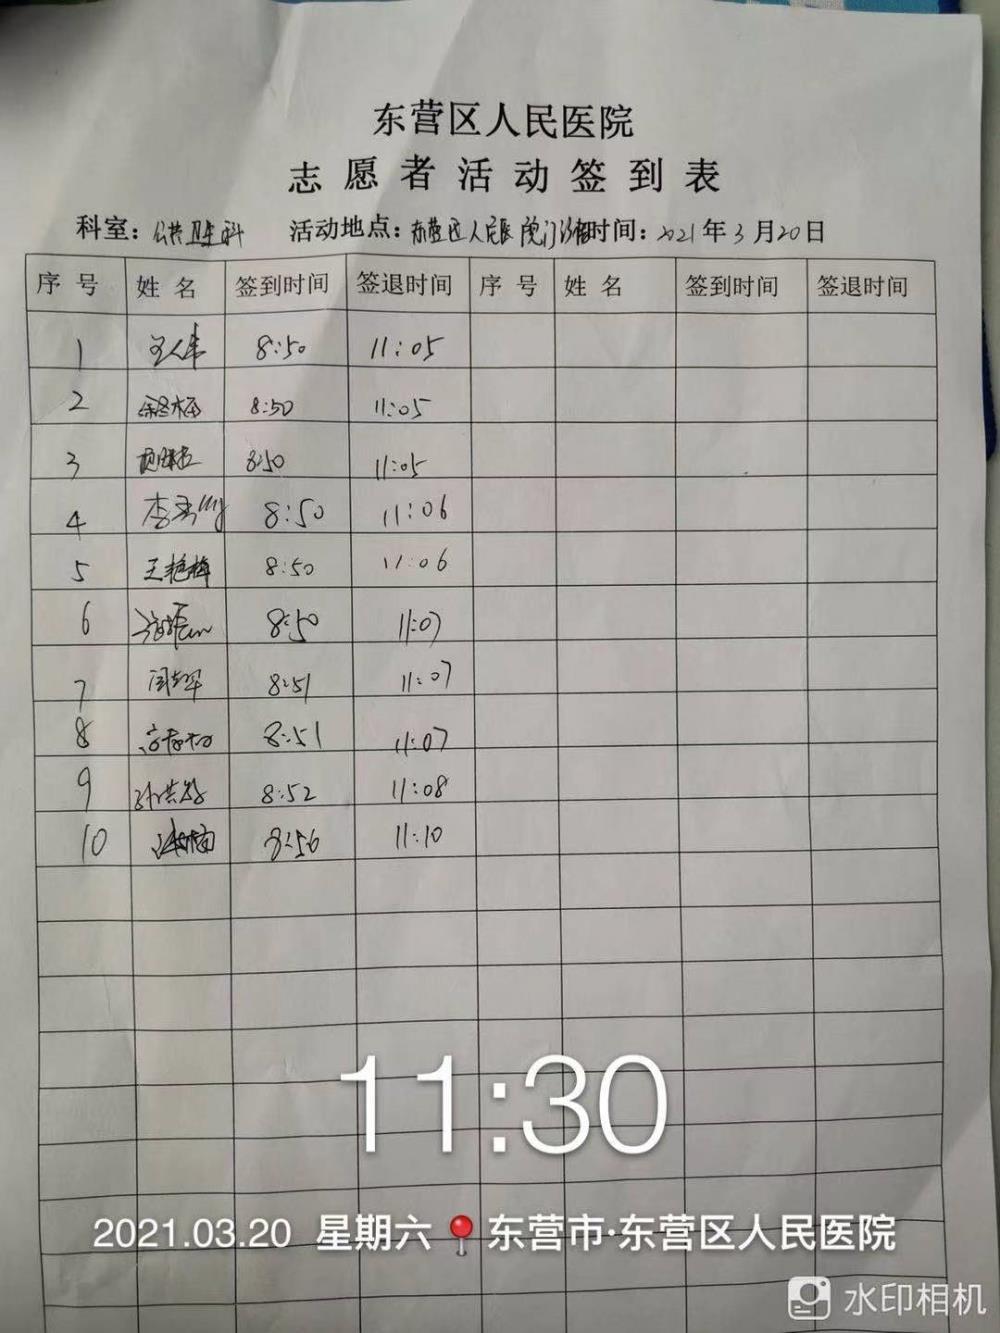 东营区人民医院
志愿者活动签到表
科室：公共卫生科 活动地点：东营区人民医院门诊 时间：2021年3月20日
序号 姓名 签到时间 签退时间 序号 姓名 签到时间 签退时间
1 8:50 11:05
2 8:50 11:05
3 8:50 11:05
4 8:50 11:06
5 王艳梅 8:50 11:06
6 8:50 11:07
7 8:51 11:07
8 8:51 11:07
9 8:52 11:08
10 8:56 11:10
11:30
2021.03.20 星期六 东营市·东营区人民医院
水印相机